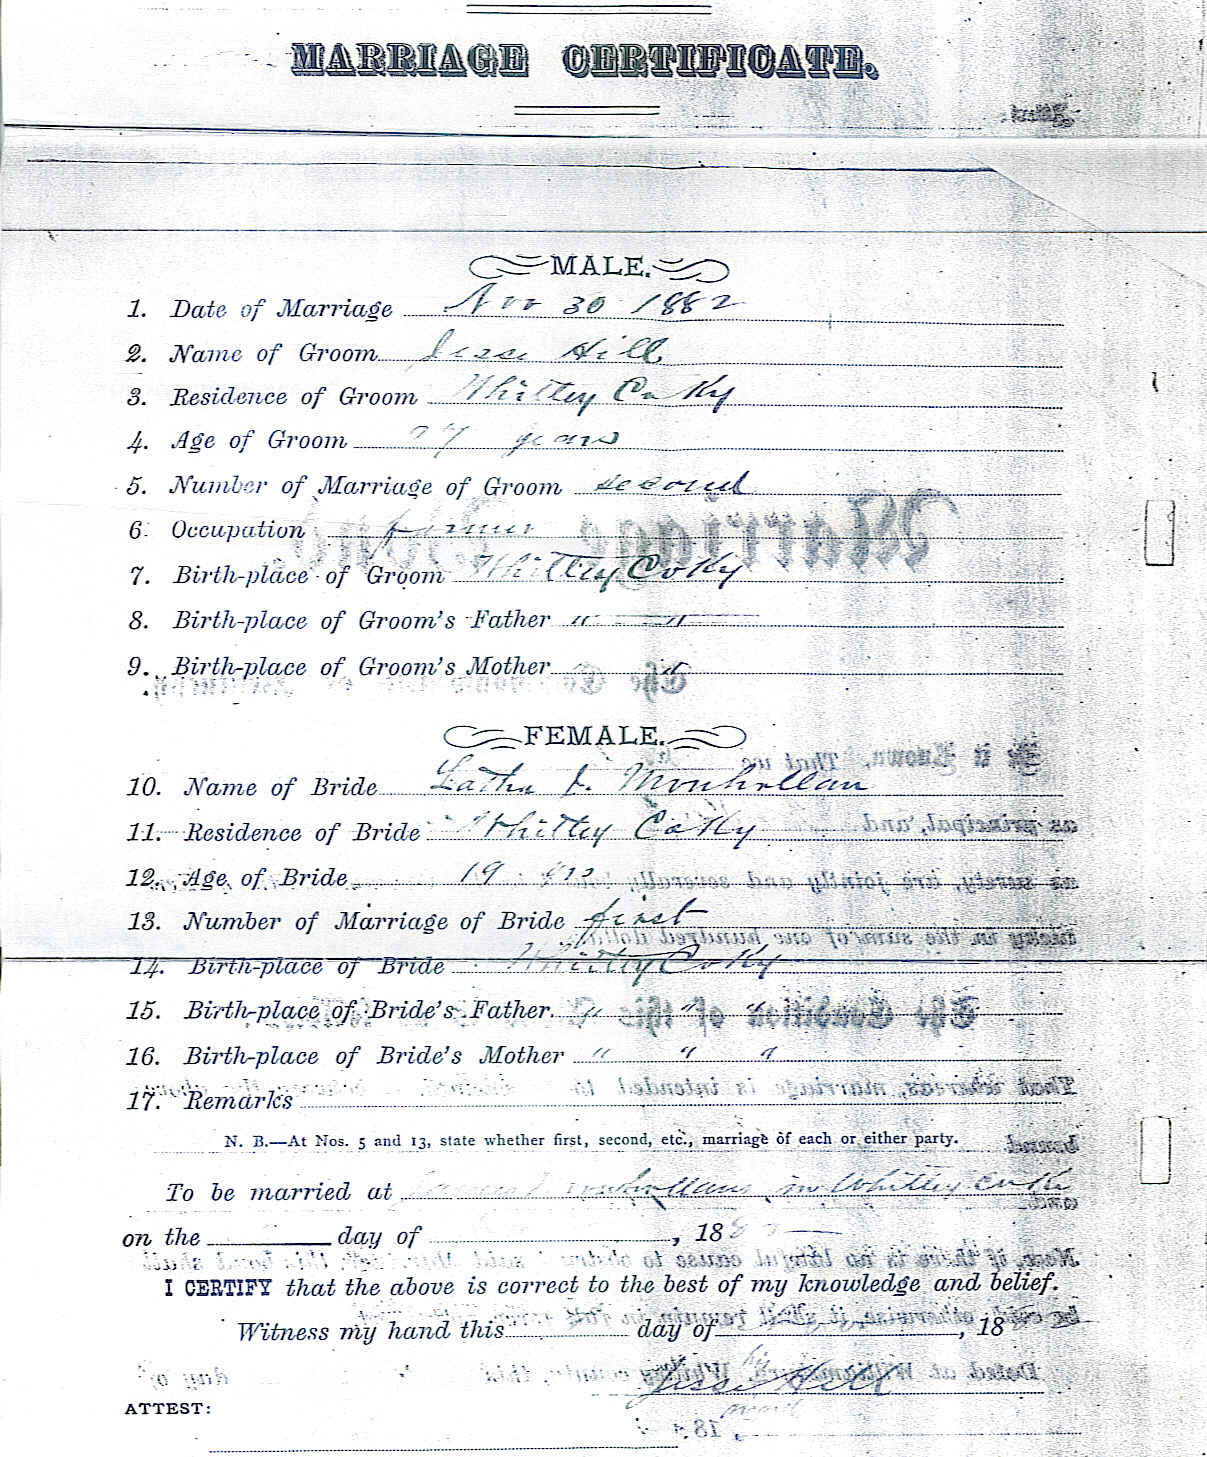 MARRIAGE CERTIFICATE.
MALE.
1. Date of Marriage Nov 30 1882
2. Name of Groom Jesse Hill
3. Residence of Groom Whitley Co Ky
4. Age of Groom years
5. Number of Marriage of Groom second
6. Occupation farmer
7. Birth-place of Groom Whitley Co Ky
8. Birth-place of Groom's Father " "
9. Birth-place of Groom's Mother " "
FEMALE.
10. Name of Bride J. Monhollan
11. Residence of Bride Whitley Co Ky
12. Age of Bride 19 yrs
13. Number of Marriage of Bride first
14. Birth-place of Bride Whitley Co Ky
15. Birth-place of Bride's Father. " " "
16. Birth-place of Bride's Mother " " "
17. Remarks
N. B.—At Nos. 5 and 13, state whether first, second, etc., marriage of each or either party.
To be married at Monhollans in Whitley Co Ky
on the day of , 188
I CERTIFY that the above is correct to the best of my knowledge and belief.
Witness my hand this day of , 18
his
Jesse Hill
mark
ATTEST: